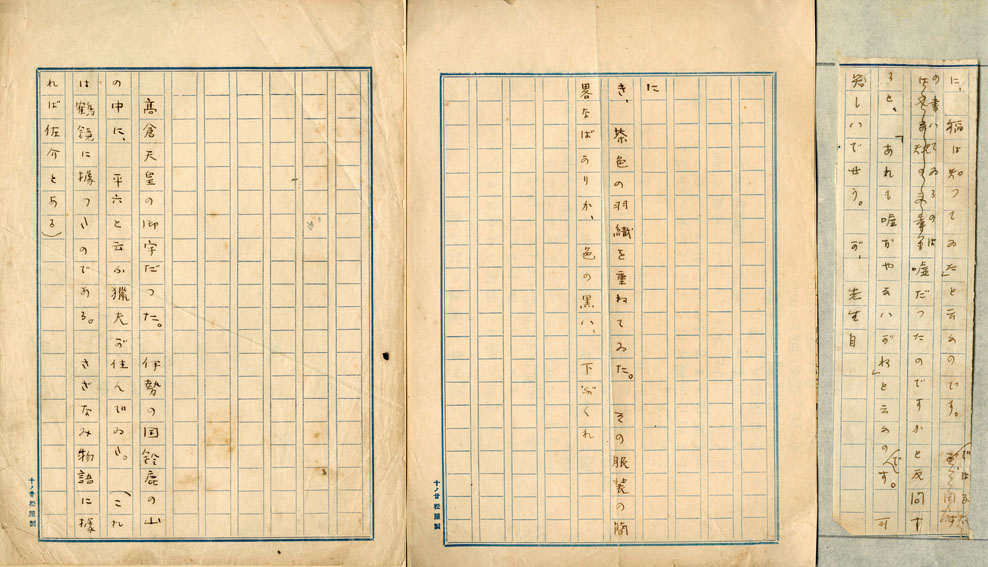 に、稲は知つてゐた」と云ふのです。
の書いてゐるのは
嘘だつたのですかと反問す
ると、「あれも嘘ぢやないがね」と云ふのです。
老生自
に
き、茶色の羽織を重ねてゐた。その服装の簡
畧なばかりか、色の黒い、下ぶくれ
高倉天皇の御宇だつた。伊勢の国鈴鹿の山
の中に、平六と云ふ猟夫が住んでゐた。(これ
は鶴鏡に據つたのである。さざなみ物語に據
れば佐介とある)
十ノ廿 松屋製
十ノ廿 松屋製